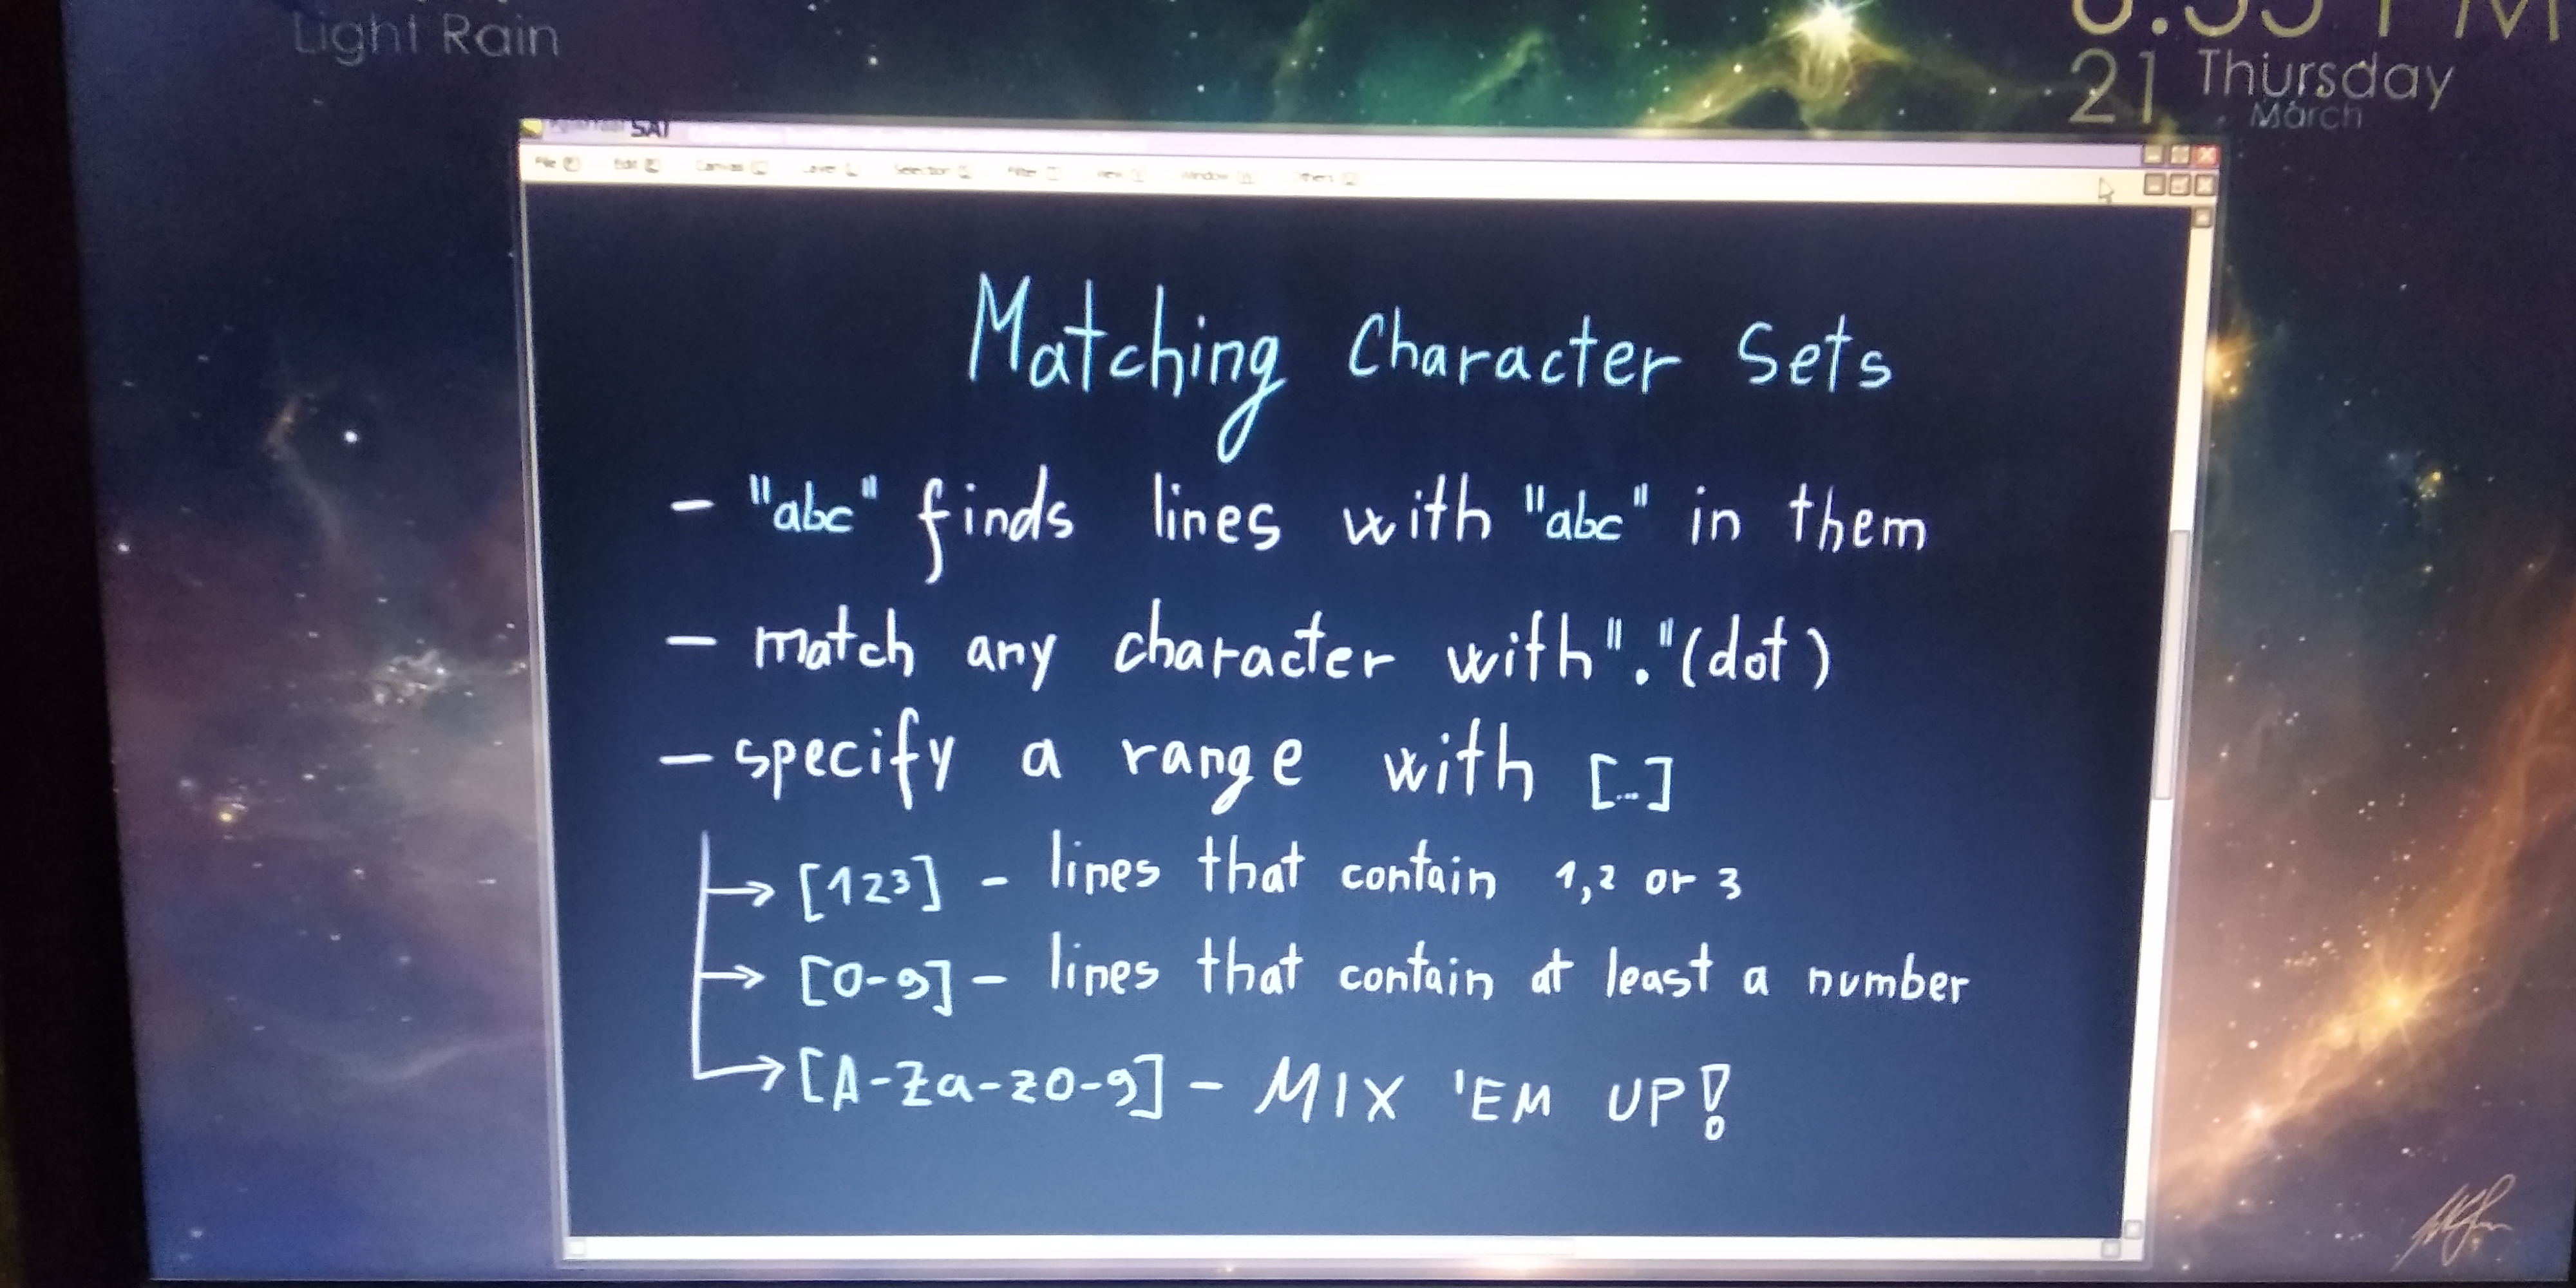 Light Rain
21 Thursday
March
SAI
File
Edit
Canvas
Layer
Selection
Filter
View
Window
Others
Matching Character Sets
- "abc" finds lines with "abc" in them
- match any character with "." (dot)
- specify a range with [...]
→ [123] - lines that contain 1,2 or 3
→ [0-9] - lines that contain at least a number
→ [A-Za-z0-9] - MIX 'EM UP!